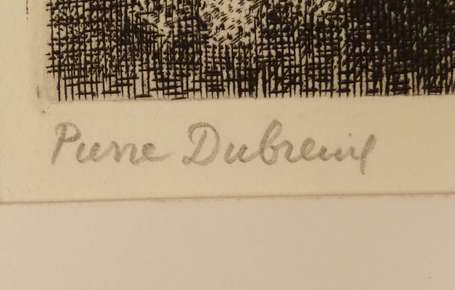 Pierre Dubreuil